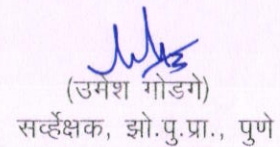 (उमेश गोडगे)
सर्व्हेक्षक, झो.पु.प्रा., पुणे